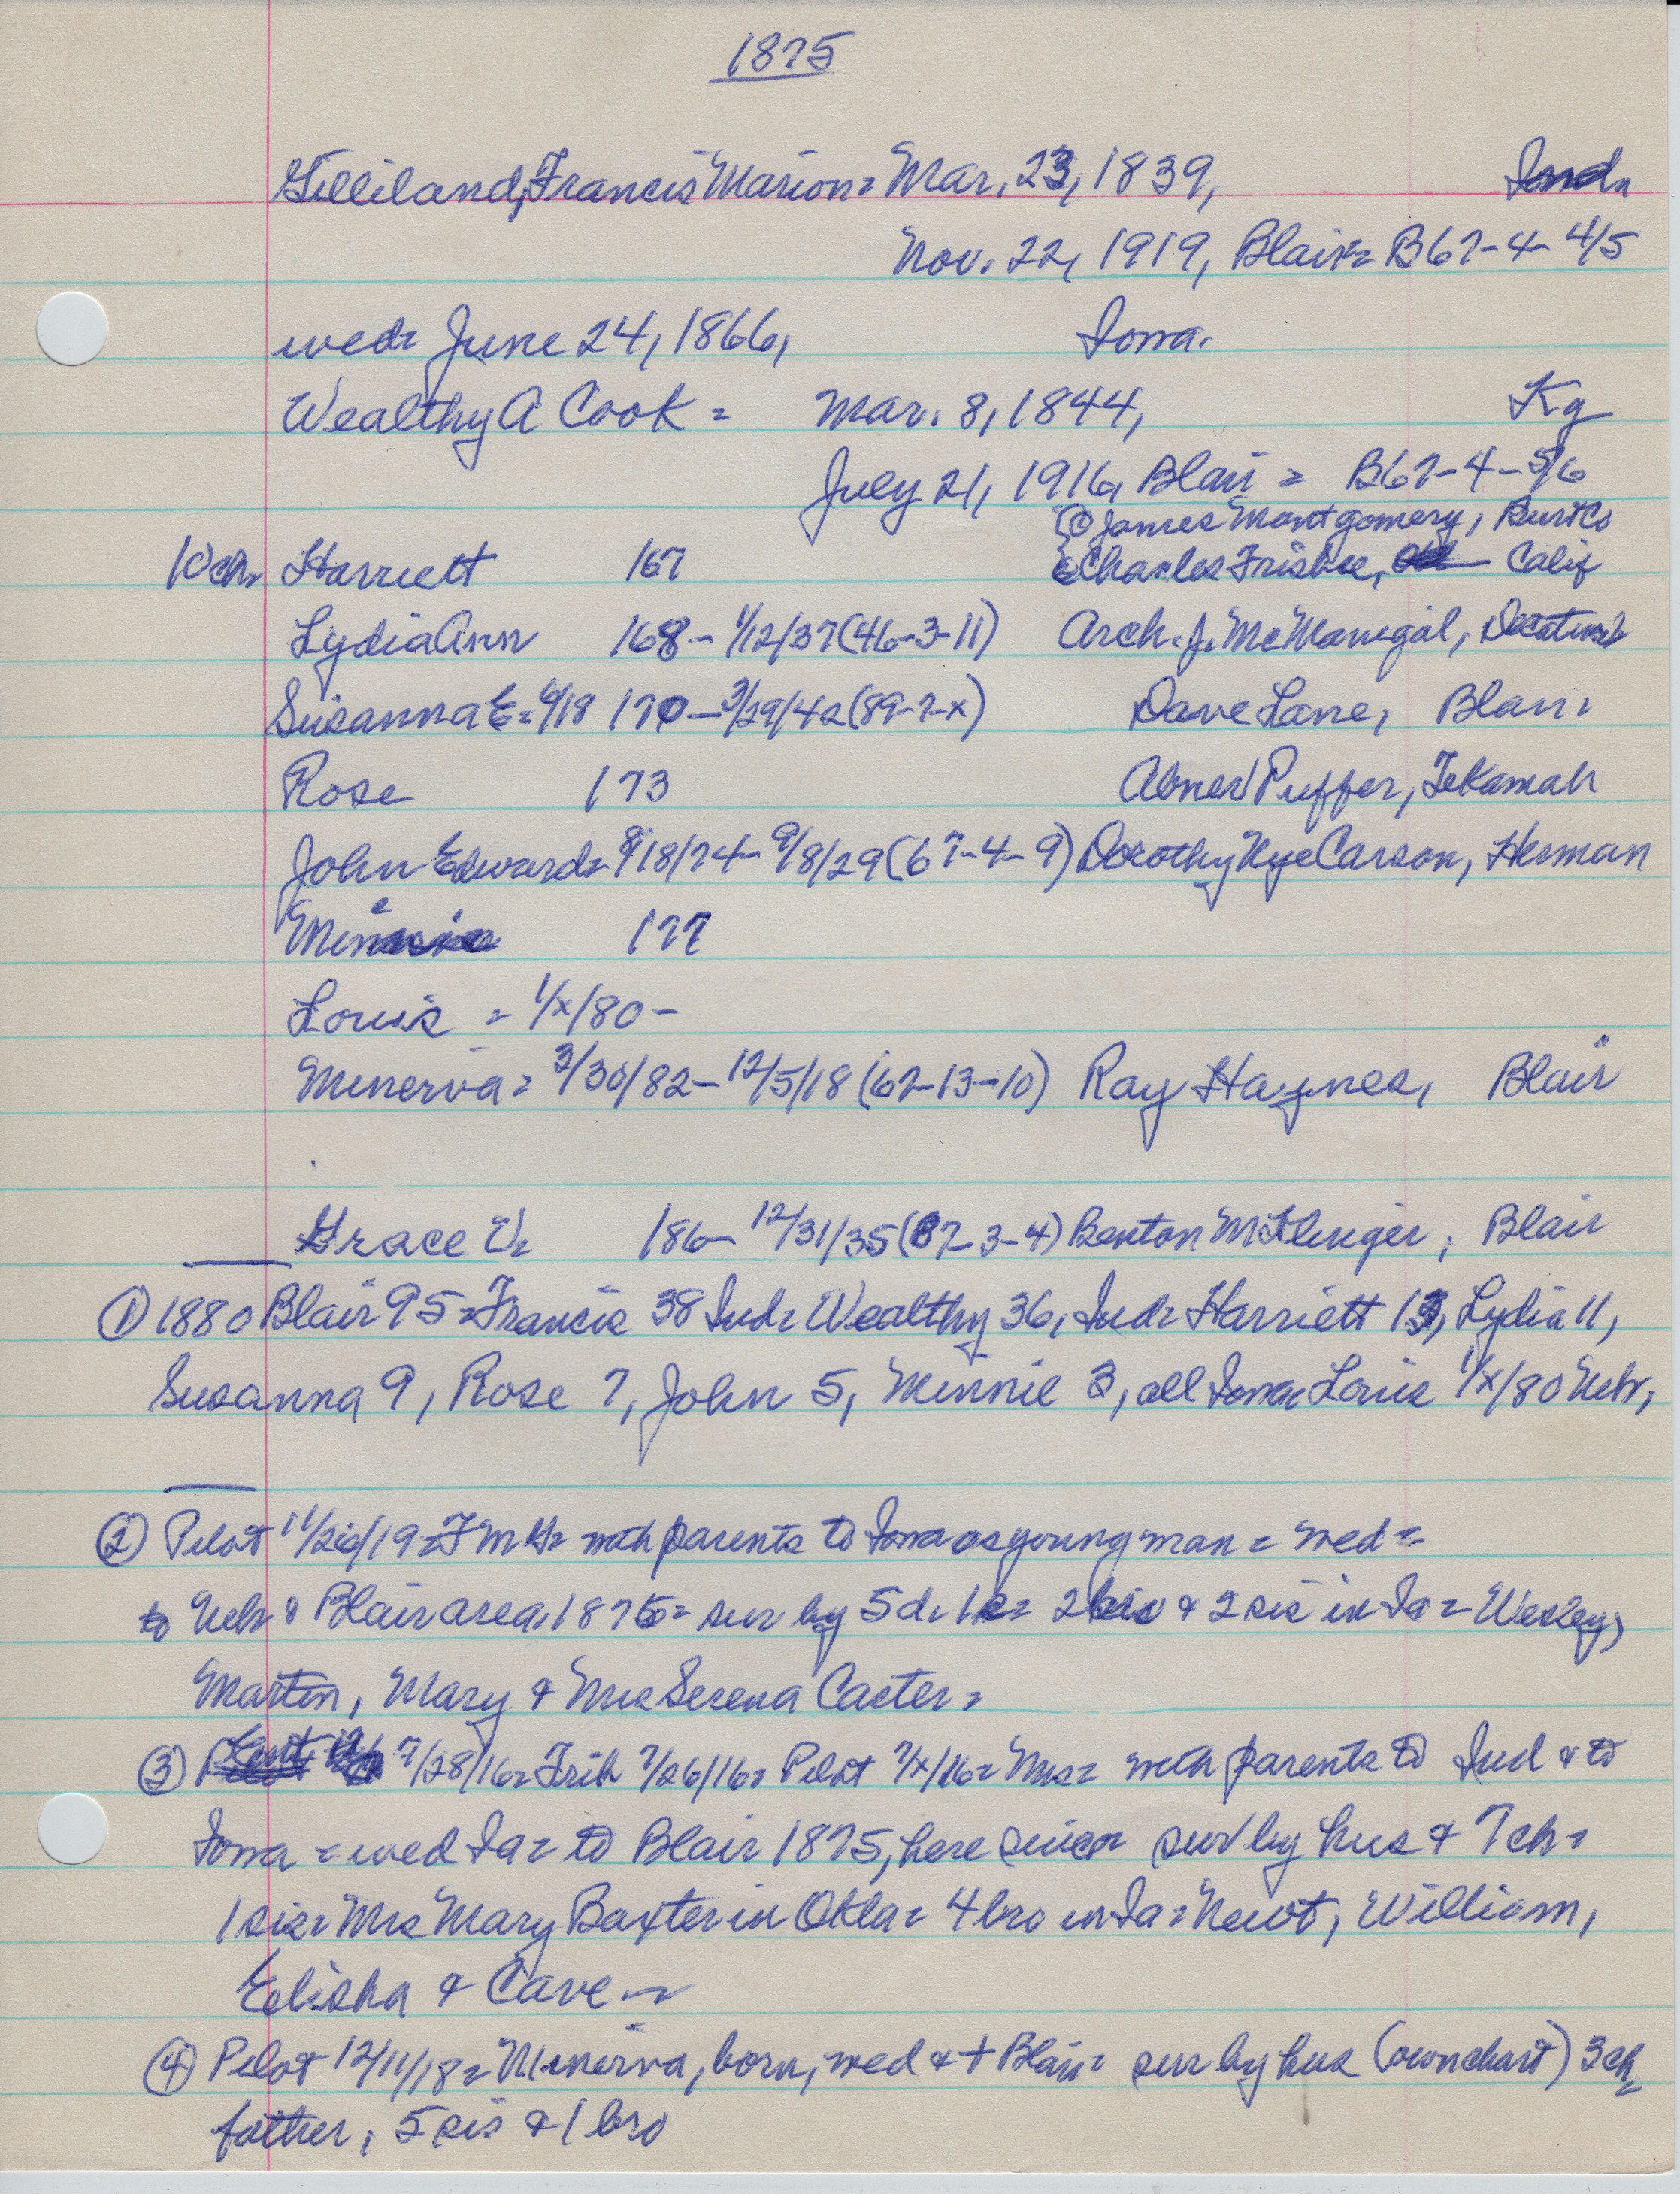 1875
Gilliland, Francis Marion = Mar. 23, 1839, Ind=
Nov. 22, 1919, Blair = B67-4-4/5
wed= June 24, 1866, Iowa.
Wealthy A Cook = Mar. 8, 1844, Ky
July 21, 1916, Blair = B67-4-5/6
① James Montgomery, Burt Co
10 ch= Harriett 167 & Charles Frisbee, Calif
Lydia Ann 168 - 1/12/37 (46-3-11) Arch. J. McManigal, Decatur
Susanna E = 6/18 170 - 3/29/42 (89-7-x) Dave Lane, Blair
Rose 173 Abner Puffer, Tekamah
John Edward = 8/18/74 - 9/8/29 (67-4-9) Dorothy Nye Carson, Herman
177
Louis = 1/x/80 -
Minerva = 3/30/82 - 12/5/18 (67-13-10) Ray Haynes, Blair
Grace V= 186 - 12/31/35 (87-3-4) Benton M. Blair
① 1880 Blair 95 = Francis 38 Ind= Wealthy 36, Ind= Harriett 13, Lydia 11,
Susanna 9, Rose 7, John 5, Minnie 3, all Iowa= Louis 1/x/80 Nebr,
② Pilot 11/26/19 = F M G = with parents to Iowa as young man = wed =
to Nebr & Blair area, 1875 = sur by 5 d. 1 s = 2 bro & 2 sis in Ia = Wesley,
Martin, Mary & Mrs Serena Carter =
③ 7/28/16 = Trib 7/26/16 = Pilot 7/x/16 = Mrs = with parents to Ind & to
Iowa = wed Ia = to Blair 1875, here since = sur by hus & 7 ch =
1 sis = Mrs Mary Baxter in Okla = 4 bro in Ia = Newt, William,
Elisha & Cave =
④ Pilot 12/11/18 = Minerva, born, wed & + Blair = sur by hus (own chart) 3 ch,
father, 5 sis & 1 bro